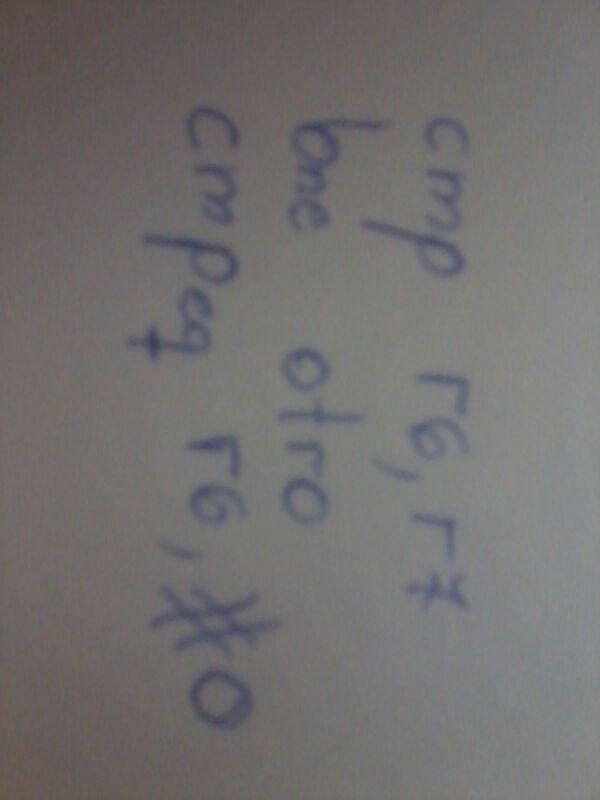 cmp r6, r7
bne otro
cmpeq r6, #0